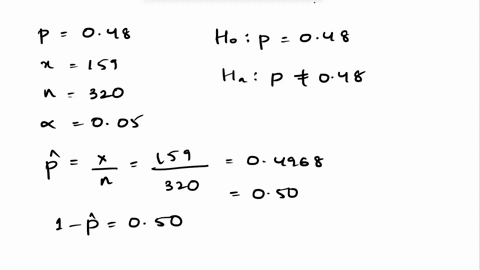 p = 0.48
x = 159
n = 320
α = 0.05
H₀ : p = 0.48
Hₐ : p ≠ 0.48
p̂ = x/n = 159/320 = 0.4968
= 0.50
1 - p̂ = 0.50